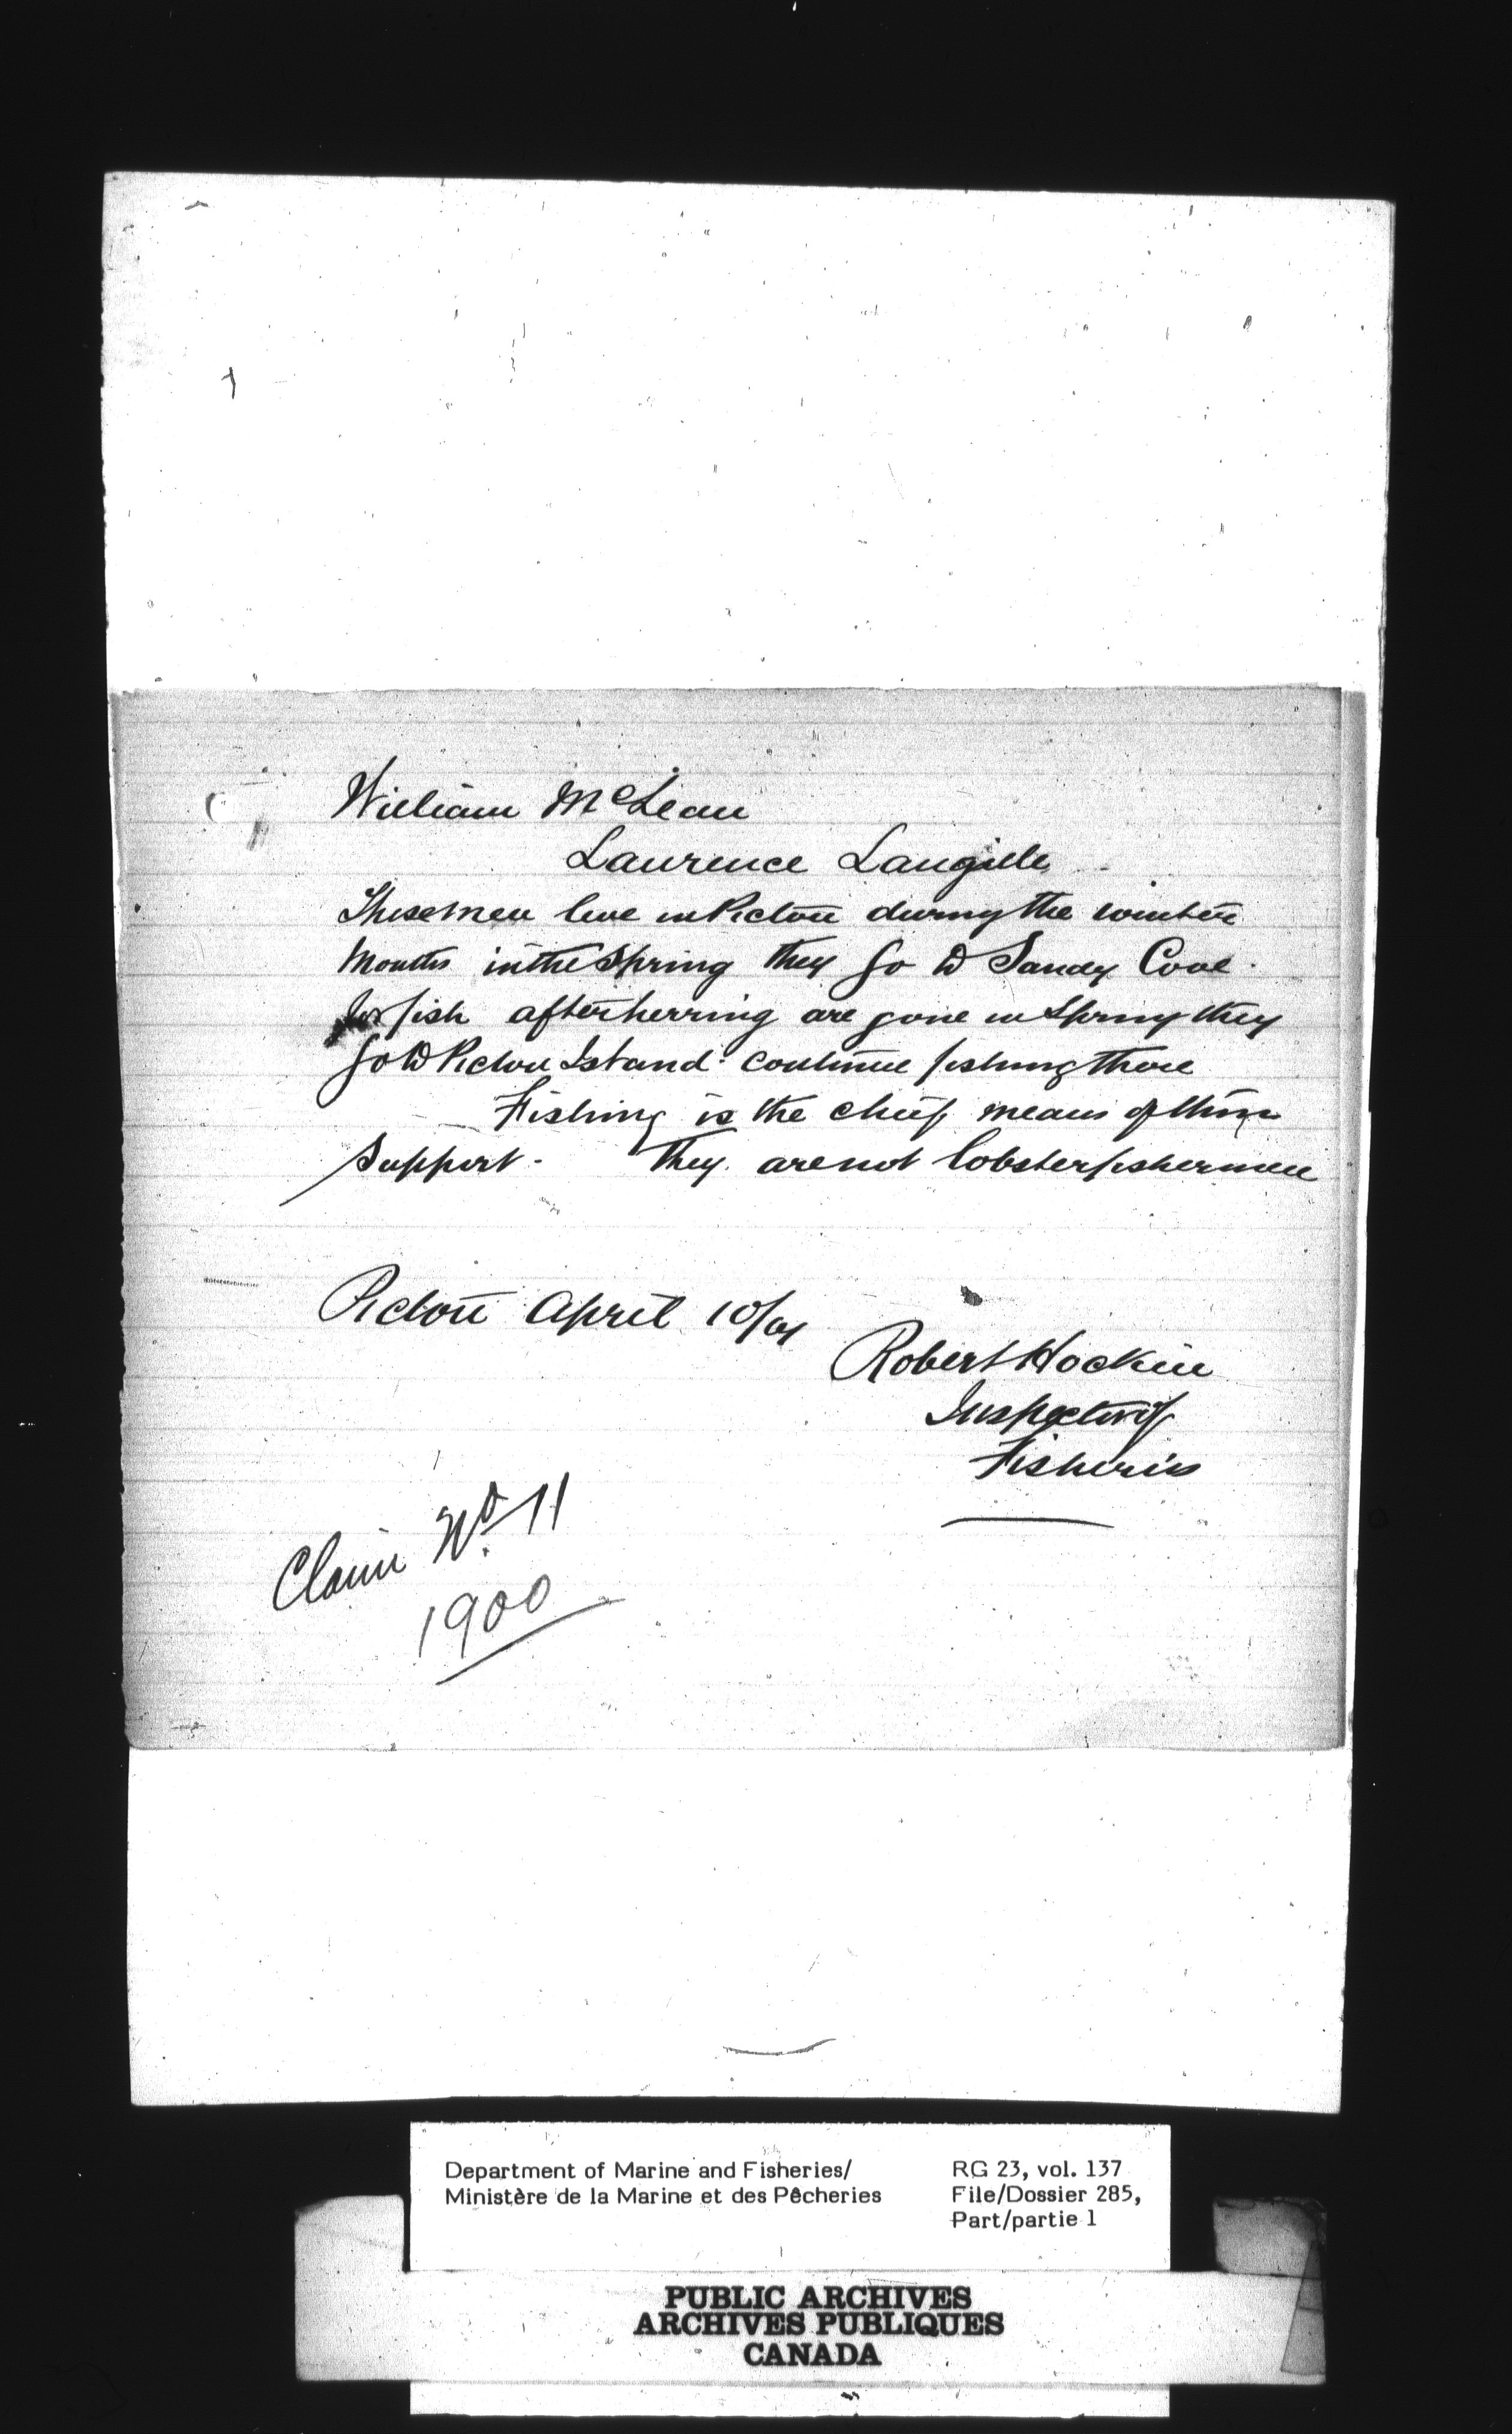 William McLean
Laurence Langille
These men live in Pictou during the winter
months in the Spring they go to Sandy Cove
to fish after herring are gone in Spring they
go to Pictou Island continue fishing there
Fishing is the cheif means of their
support - They are not lobster fishermen
Pictou April 10/01
Robert Hockin
Inspector of
Fisheries
Claim No 11
1900
Department of Marine and Fisheries/
Ministère de la Marine et des Pêcheries
RG 23, vol. 137
File/Dossier 285,
Part/partie 1
PUBLIC ARCHIVES
ARCHIVES PUBLIQUES
CANADA